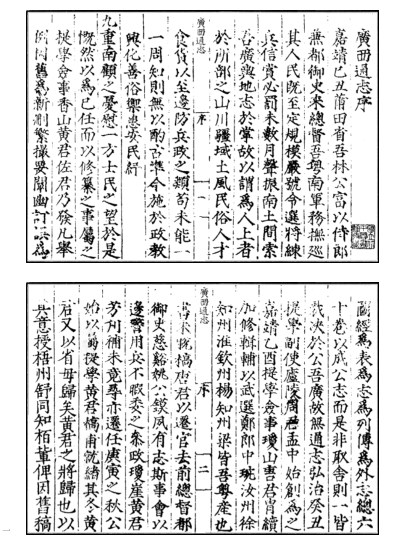 廣西通志序
嘉靖己丑莆田省吾林公富以侍郎
兼都御史來總督吾粤南軍務撫巡
其人民既至定規模嚴號令選將練
兵信賞必罰未數月聲振南土間索
吾廣輿地志於掌故以謂為人上者
於所部之山川疆域土風民俗人才
廣西通志 序 一
食貨以至邊防兵政之類苟未能一
一周知則無以酌古準今施於政教
興化善俗禦患 民紓
九重南顧之憂慰一方士民之望於是
慨然以為己任而以修纂之事屬之
提學僉事香山黄君佐君乃發凡舉
例因舊為新剔繁撮要闡幽訂 為
圖經為表為志為列傳為外志總六
十卷以成公志而是非取舍則一皆
裁決於公吾廣故無通志弘治癸丑
提學副使廬陵周君孟中始創為之
嘉靖乙酉提學僉事瓊山唐君胄續
加修輯輔以武選郎中 琬州徐
知州淮欽州楊知州梁皆吾粤產也
廣西通志 序 二
書未脱槁唐君以遷官去前總督都
御史慈谿姚公鏌夙有志斯事會以
邊警用兵不暇委之 政瓊崖黄君
芳刋補未竟尋亦遷任庚寅之秋公
始以屬提學黄君 甫就緒其冬黄
君又以省母歸矣黄君之將歸也以
其意授梧州舒同知栢輩俾因舊稿